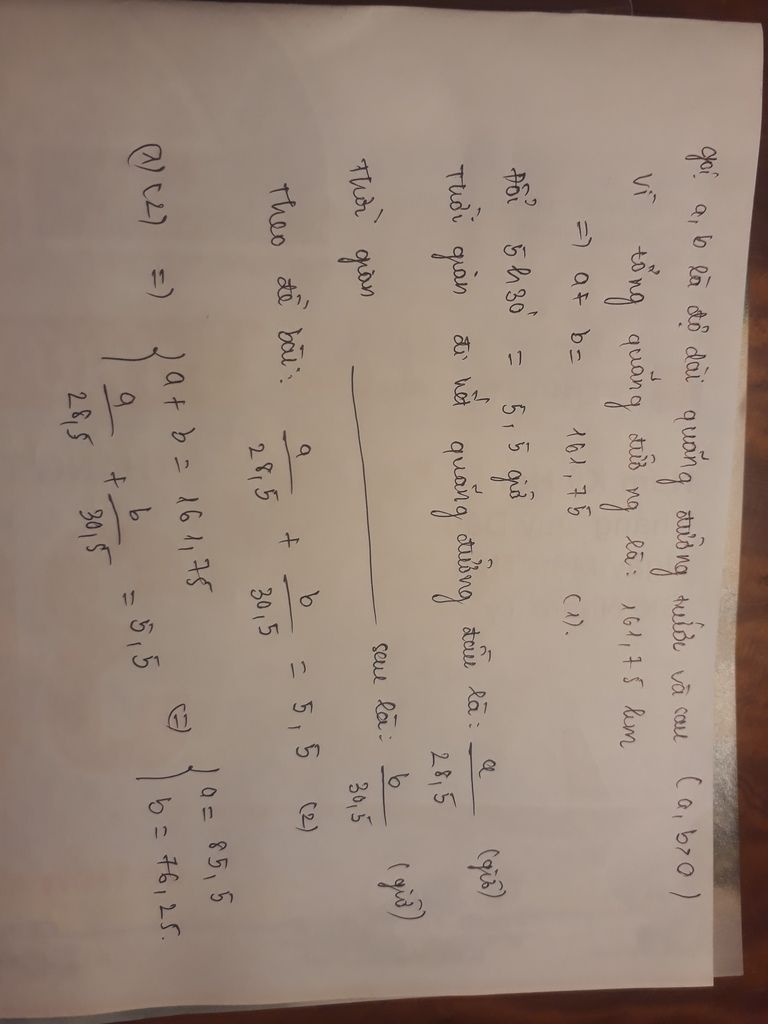 gọi a, b là độ dài quãng đường trước và sau (a, b > 0)
Vì tổng quãng đường là: 161,75 km
=> a + b = 161,75 (1).
Đổi 5h30' = 5,5 giờ
Thời gian đi hết quãng đường đầu là: a/28,5 (giờ)
Thời gian ——— sau là: b/30,5 (giờ)
Theo đề bài: a/28,5 + b/30,5 = 5,5 (2)
(1) (2) => { a + b = 161,75 (=) { a = 85,5
a/28,5 + b/30,5 = 5,5 b = 76,25.